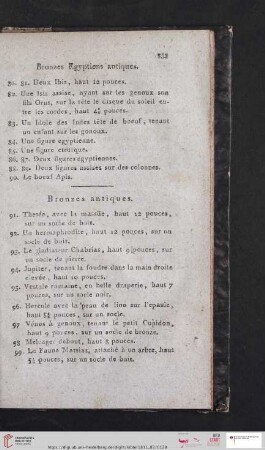 Bronzes Egyptiens antiques.
80. 81. Deux Ibis, haut 12 pouces.
82. Une Isis assise, ayant sur les genoux son
fils Orus, sur la tête le disque du soleil en-
tre les cordes, haut 4¾ pouces.
83. Un Idole des Indes tête de boeuf, tenant
un enfant sur les genoux.
84. Une figure egyptienne.
85. Une figure etrusque.
86. 87. Deux figures egyptiennes.
88. 89. Deux figures assises sur des colonnes.
90. Le boeuf Apis.
Bronzes antiques.
91. Thesée, avec la massue, haut 12 pouces,
sur un socle de bois.
92. Un hermaphrodite, haut 12 pouces, sur un
socle de bois.
93. Le gladiateur Chabrias, haut pouces, sur
un socle de pierre.
94. Jupiter, tenant la foudre dans la main droite
elevée, haut 10 pouces.
95. Vestale romaine, en belle draperie, haut 7
pouces, sur un socle noir.
96. Hercule avec la peau de lion sur l'epaule,
haut pouces, sur un socle.
97. Vénus à genoux, tenant le petit Cupidon,
haut 9 pouces, sur un socle de bronze.
98. Meleager debout, haut 8 pouces.
99. Le Faune Marsias, attaché à un arbre, haut
pouces, sur un socle de bois.